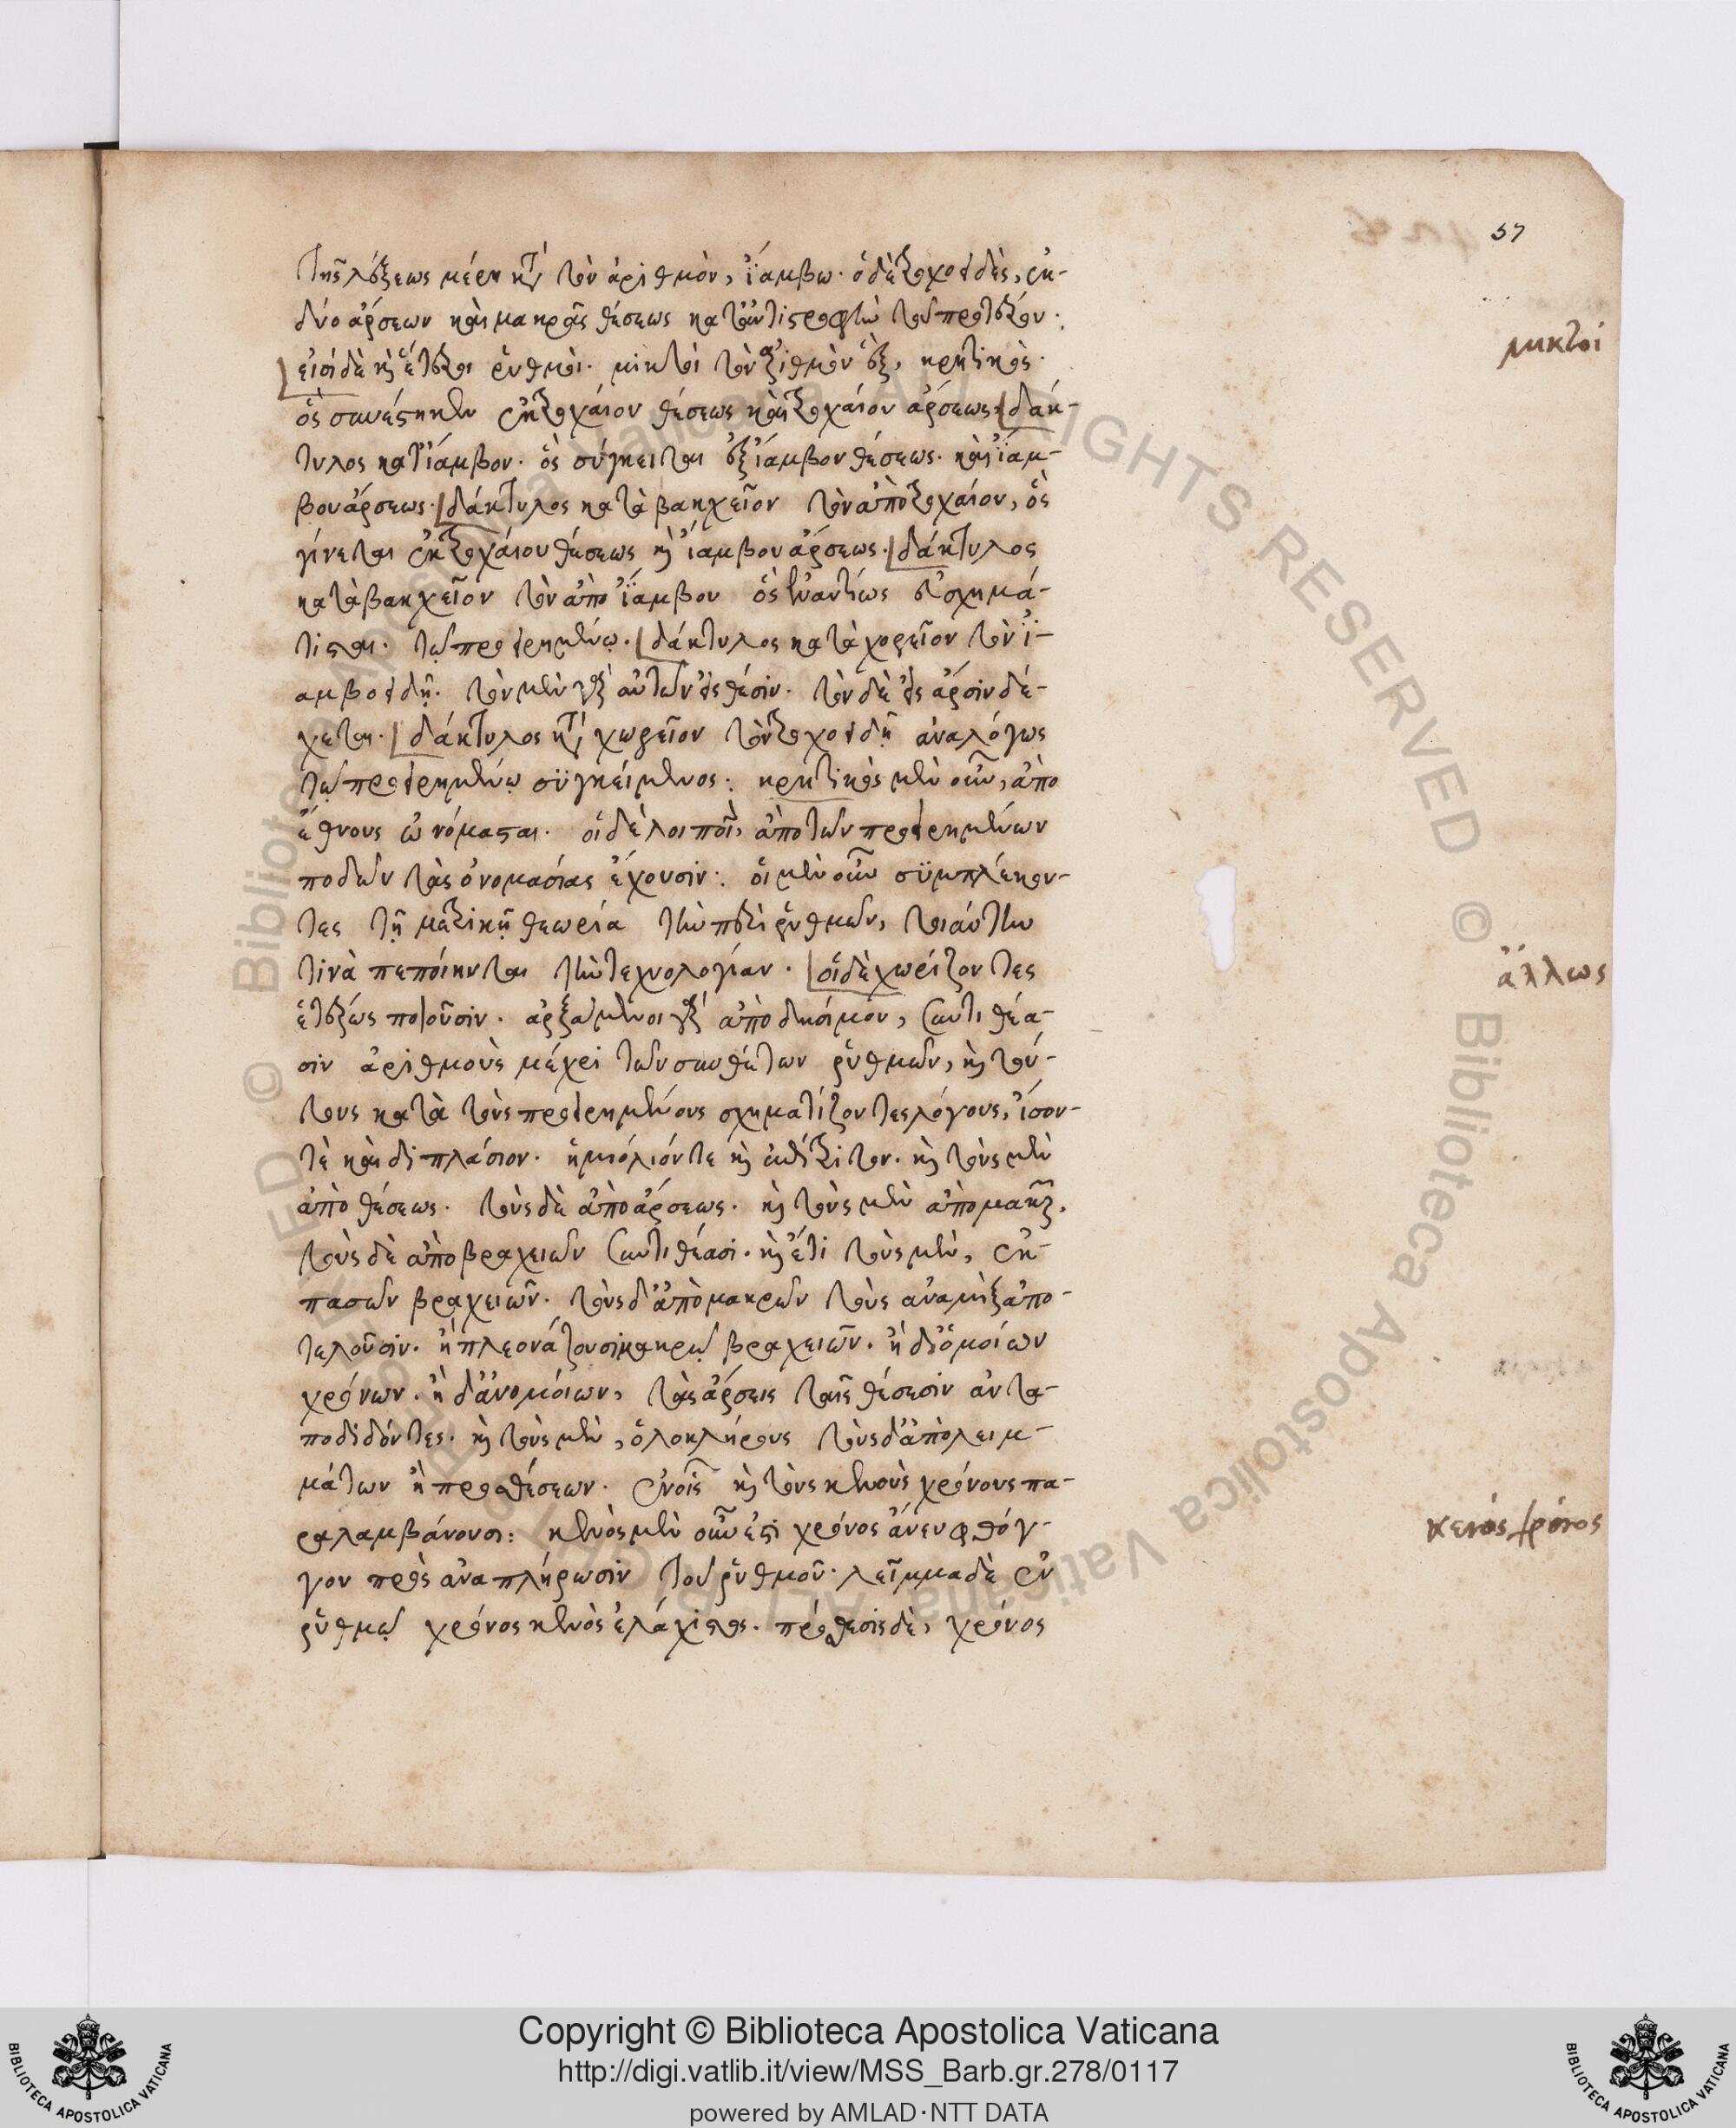 57
τῆς λέξεως μέρη κατὰ τὸν ἀριθμὸν, ἰάμβω· ὁ δὲ τροχοειδὲς, ἐκ-
δύο ἄρσεων καὶ μακρᾶς θέσεως κατ' ἀντιστροφὴν τοῦ προτέρου·
εἰσὶ δὲ καὶ ἕτεροι ῥυθμοὶ· μικτοὶ τὸν ἀριθμὸν ἕξ, κρητικὸς·
μικτοί
ὃς συνέστηκεν ἐκ τροχαίου θέσεως καὶ τροχαίου ἄρσεως· δάκ-
τυλος κατ' ἴαμβον· ὃς σύγκειται ἐξ ἰάμβου θέσεως· καὶ ἰάμ-
βου ἄρσεως· δάκτυλος κατὰ βακχεῖον τὸν ἀπὸ τροχαίου, ὃς
γίνεται ἐκ τροχαίου θέσεως καὶ ἰάμβου ἄρσεως· δάκτυλος
κατὰ βακχεῖον τὸν ἀπὸ ἰάμβου ὃς ἐναντίως ἐσχημά-
τισται· τῷ προειρημένῳ· δάκτυλος κατὰ χορεῖον τὸν ἰ-
αμβοειδῆ· τὸν μὲν γὰρ αὐτῶν εἰς θέσιν· τὸν δὲ εἰς ἄρσιν δέ-
χεται· δάκτυλος κατὰ χωρεῖον τὸν τροχοειδῆ ἀναλόγως
τῷ προειρημένῳ συγκείμενος· κρητικὸς μὲν οὖν, ἀπὸ
ἔθνους ὠνόμασται· οἱ δὲ λοιποὶ, ἀπὸ τῶν προειρημένων
ποδῶν τὰς ὀνομασίας ἔχουσιν· οἱ μὲν οὖν συμπλέκον-
τες τῇ μετρικῇ θεωρία τὴν περὶ ῥυθμῶν, τοιαύτην
τινὰ πεποίηνται τὴν τεχνολογίαν· οἱ δὲ χωρίζοντες
ἄλλως
ἑτέρως ποιοῦσιν· ἀρξάμενοι γὰρ ἀπὸ δισήμου, συντιθέα-
σιν ἀριθμοὺς μέχρι τῶν συνθέτων ῥυθμῶν, καὶ τού-
τους κατὰ τοὺς προειρημένους σχηματίζοντες λόγους, ἴσον-
τὲ καὶ διπλάσιον· ἡμιόλιόν τε καὶ ἐπίτριτον· καὶ τοὺς μὲν
ἀπὸ θέσεως· τοὺς δὲ ἀπὸ ἄρσεως· καὶ τοὺς μὲν ἀπὸ μακρῶν,
τοὺς δὲ ἀπὸ βραχειῶν συντιθέασι· καὶ ἔτι τοὺς μὲν, ἐκ-
πασῶν βραχειῶν· τοὺς δ' ἀπὸ μακρῶν τοὺς ἀναμὶξ ἀπο-
τελοῦσιν· ἢ πλεονάζουσι μακρῷ βραχειῶν· ἢ δι' ὁμοίων
χρόνων· ἢ δ' ἀνομοίων, τὰς ἄρσεις ταῖς θέσεσιν ἀντα-
ποδιδόντες· καὶ τοὺς μὲν, ὁλοκλήρους τοὺς δ' ἀπὸ λειμ-
μάτων ἢ προσθέσεων· ἐν οἷς καὶ τοὺς κενοὺς χρόνους πα-
ραλαμβάνουσι: κενὸς μὲν οὖν ἐστι χρόνος ἄνευ φθόγ-
κενός χρόνος
γου πρὸς ἀναπλήρωσιν τοῦ ῥυθμοῦ· λεῖμμα δὲ ἐν
ῥυθμῷ χρόνος κενὸς ἐλάχιστος· πρόσθεσις δὲ, χρόνος
Copyright © Biblioteca Apostolica Vaticana
http://digi.vatlib.it/view/MSS_Barb.gr.278/0117
powered by AMLAD·NTT DATA